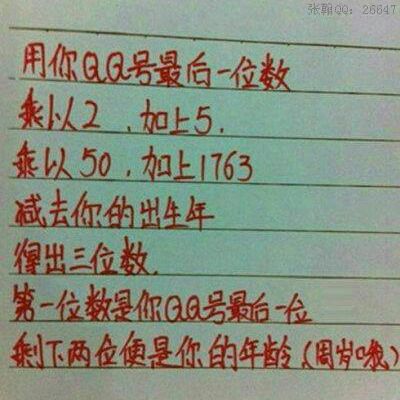 张翰QQ：26647
用你QQ号最后一位数
乘以2，加上5.
乘以50，加上1763
减去你的出生年
得出三位数.
第一位数是你QQ号最后一位
剩下两位便是你的年龄(周岁哦)